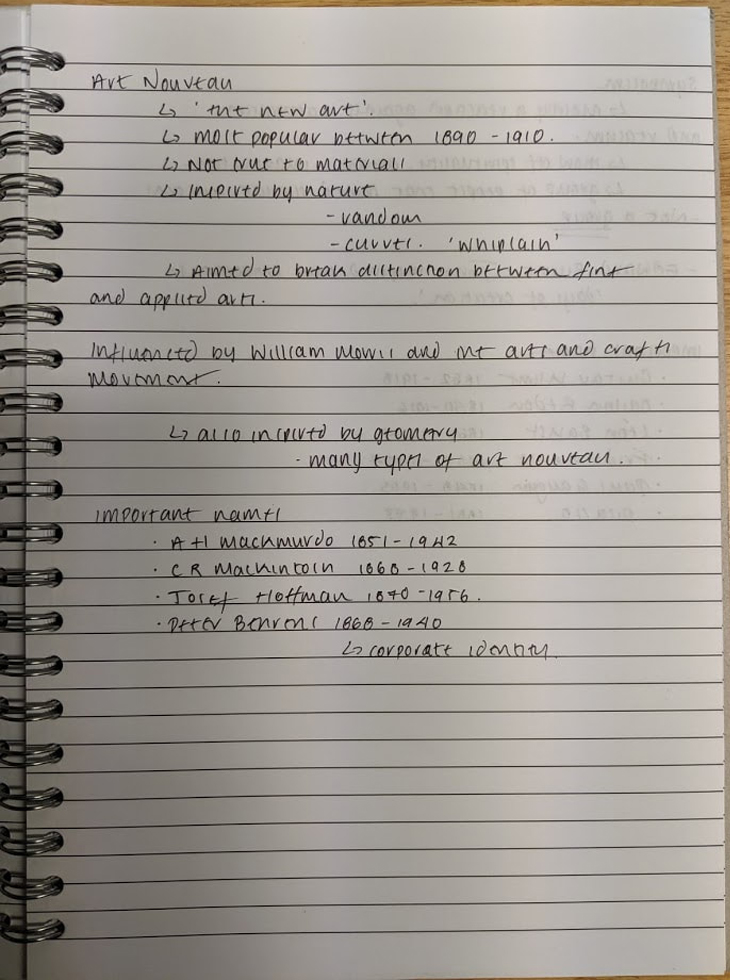 Art Nouveau
↳ 'the new art'.
↳ most popular between 1890 - 1910.
↳ Not true to materials
↳ Inspired by nature
- random
- curves. 'whiplash'
↳ Aimed to break distinction between fine
and applied arts.
Influenced by William Morris and the arts and crafts
Movement.
↳ also inspired by geometry
· many types of art nouveau.
Important names
· A H Mackmurdo 1851 - 1942
· C R Mackintosh 1868 - 1928
· Josef Hoffman 1870 - 1956.
· Peter Behrens 1868 - 1940
↳ corporate identity.